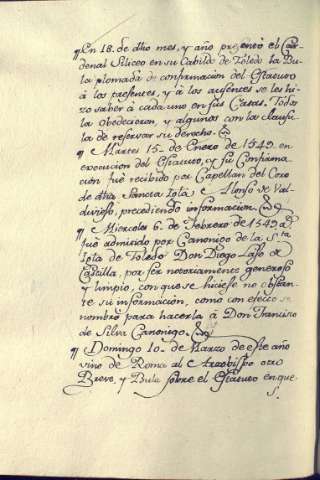 ¶ En 18. de dho mes, y año presentó el Car-
denal Siliceo en su Cabildo de Toledo la Bu-
la plomada de confirmacion del Estatuto
à los presentes, y à los ausentes se les hi-
zo saber à cada uno en sus Casas. Todos
la obedecieron, y algunos con la clausu-
la de reservar su derecho.
¶ Martes 15. de Enero de 1549. en
execucion del Estatuto, y su Confirma-
cion fue recibido por Capellan del Coro
de dha Sancta Igla. Alonso de Val-
divieso, precediendo informacion.
¶ Miercoles 6. de Febrero de 1549.
fué admitido por Canonigo de la S.ta
Igla de Toledo Don Diego Lasso de
Castilla, por ser notoriamente generoso
y limpio, con que se hiciese no obstan-
te su informacion, como con efecto se
nombró para hacerla à Don Francisco
de Silva Canonigo.
¶ Domingo 10. de Marzo de este año
vino de Roma al Arzobispo otro
Breve, y Bula sobre el Estatuto en que